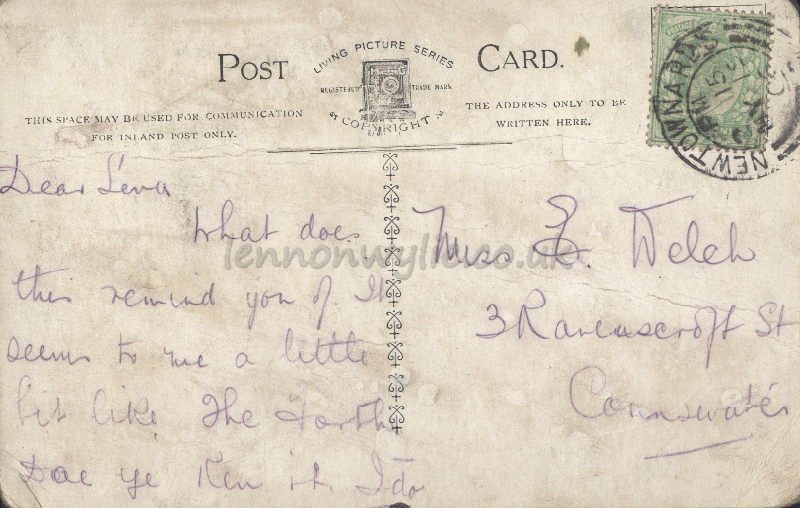 POST CARD.
LIVING PICTURE SERIES
REGISTERED TRADE MARK
COPYRIGHT
THIS SPACE MAY BE USED FOR COMMUNICATION
FOR INLAND POST ONLY.
THE ADDRESS ONLY TO BE
WRITTEN HERE.
NEWTOWNARDS
Dear Lena
What does
this remind you of. It
seems to me a little
bit like the
Dae ye Ken it. I do
Miss E. Welch
3 Ravenscroft St
Connswater
lennonwylie.co.uk